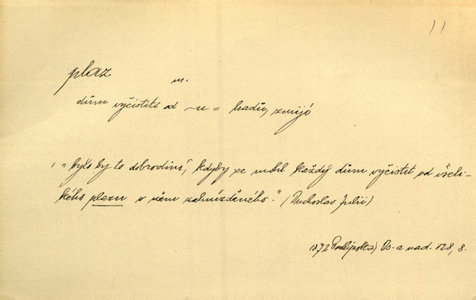 11
plaz
m.
dům vyčistiti od ~u = hadů, zmijí
„bylo by to dobrodiní, kdyby se mohl každý dům vyčistit od všeli-
kého plazu v něm zahnízděného." (Duchoslav Julii)
1872 Podlipská, Os. a nad. 128, 8.